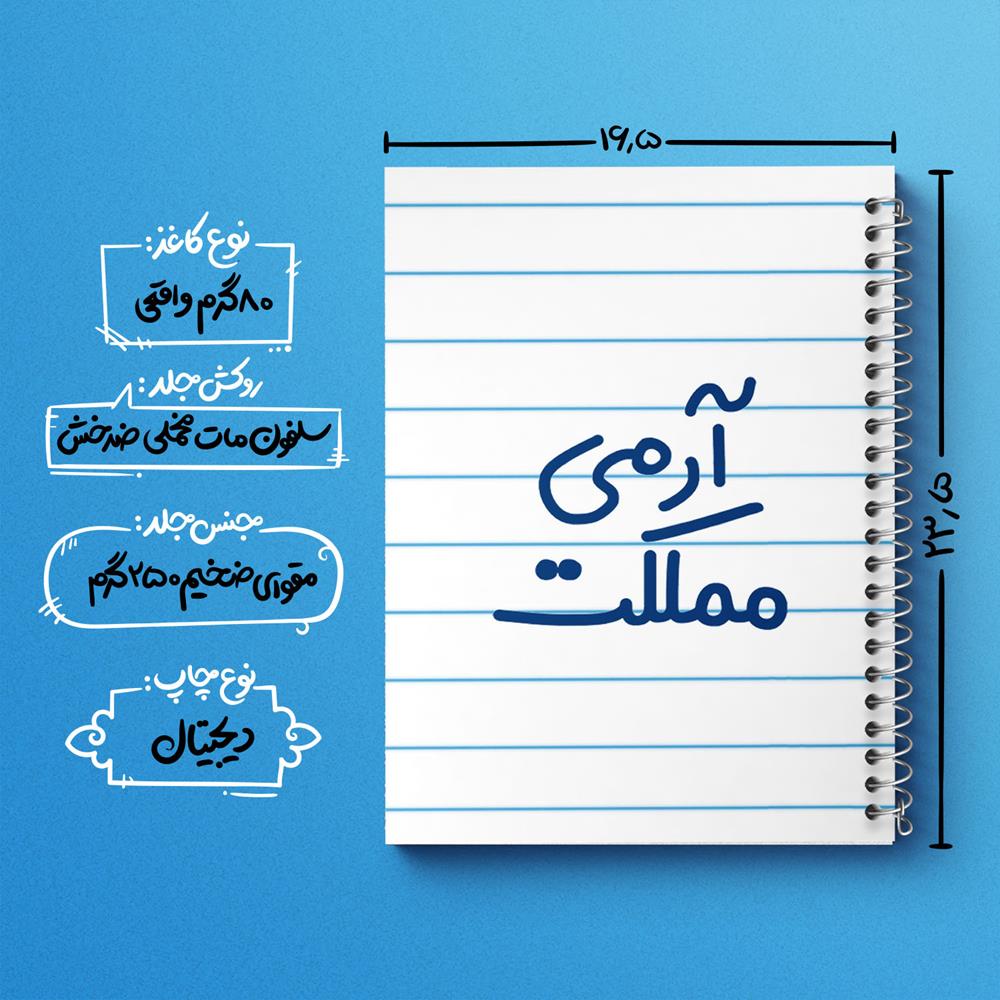 ۱۶٫۵
۲۳٫۵
نوع کاغذ:
۸۰گرم واقعی
روکش جلد:
سلفون مات مخملی ضدخش
جنس جلد:
مقوای ضخیم ۲۵۰گرم
نوع چاپ:
دیجیتال
آدمی
مملکت